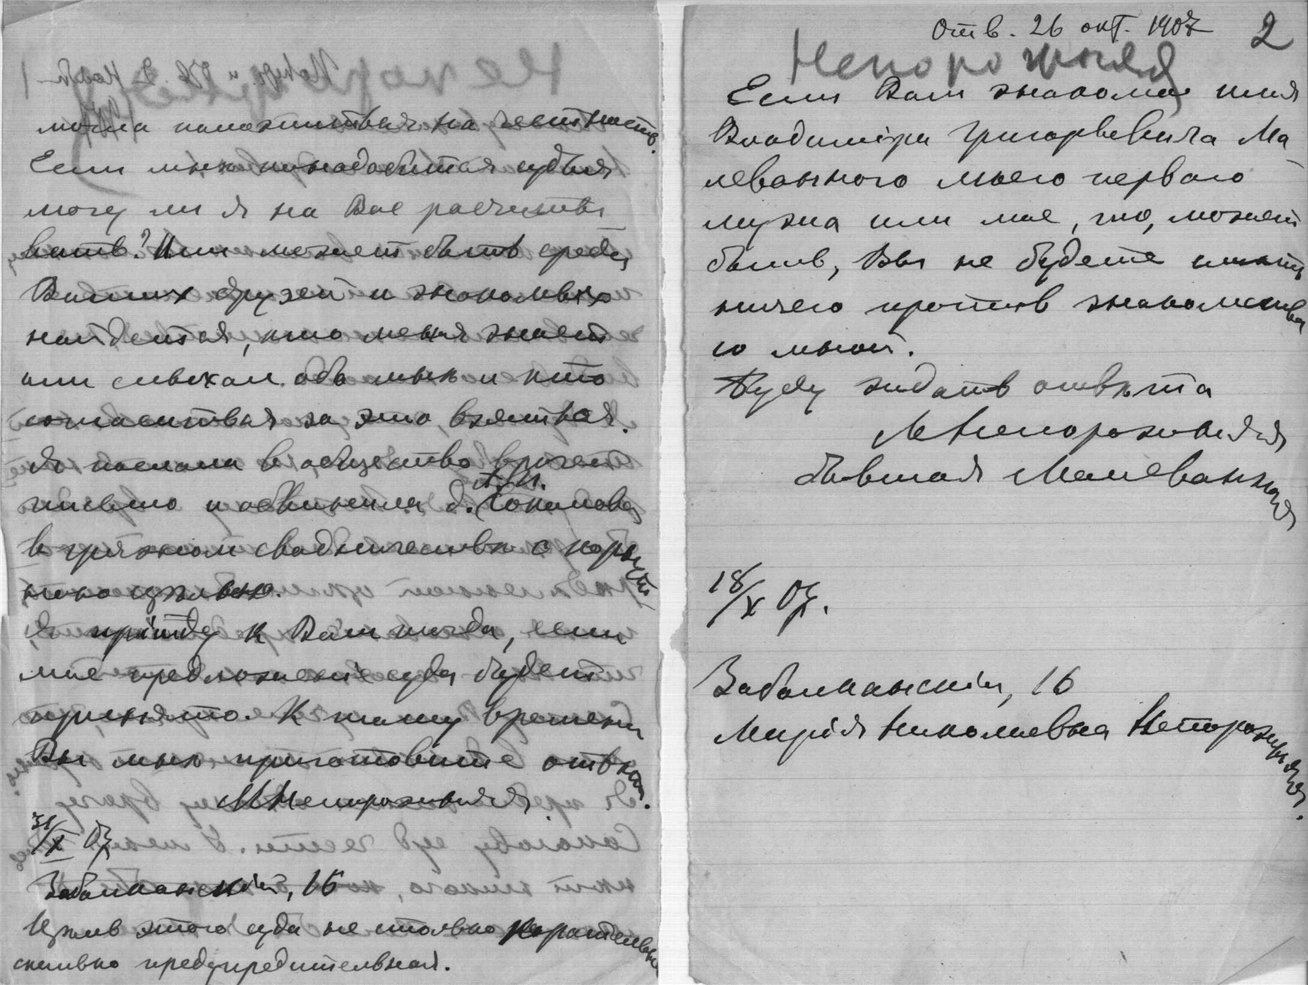 можна положитъся на честность.
Если мнѣ понадобится судья
могу ли я на Вас расчиты
вать? Или может быть среди
Ваших друзей и знакомых
найдется, кто меня знает
или слыхал обо мнѣ и кто
согласиться за это взяться.
Я послала в общество врачей
письмо и обвинила д. А.И. Соколова
в грязном сводничествѣ с корыст
ною цѣлью.
Я прійду к Вам тогда, если
мое предложеніе суда будет
принято. К тому времени
Вы мнѣ приготовите отвѣт.
МНепорожняя.
31/X 07
Забалканскій, 16
Цѣль этого суда не столько карательная
сколько предупредительная.
Отв. 26 окт. 1907
2
Непорожняя
Если Вам знакомо имя
Владиміра Григорьевича Ма
леванного моего перваго
мужа или мое, то, может
быть, Вы не будете имѣть
ничего против знакомства
со мной.
Буду ждать отвѣта
МНепорожняя
бывшая Малеванная
18/X 07.
Забалканскій, 16
Марія Николаевна Непорожняя.